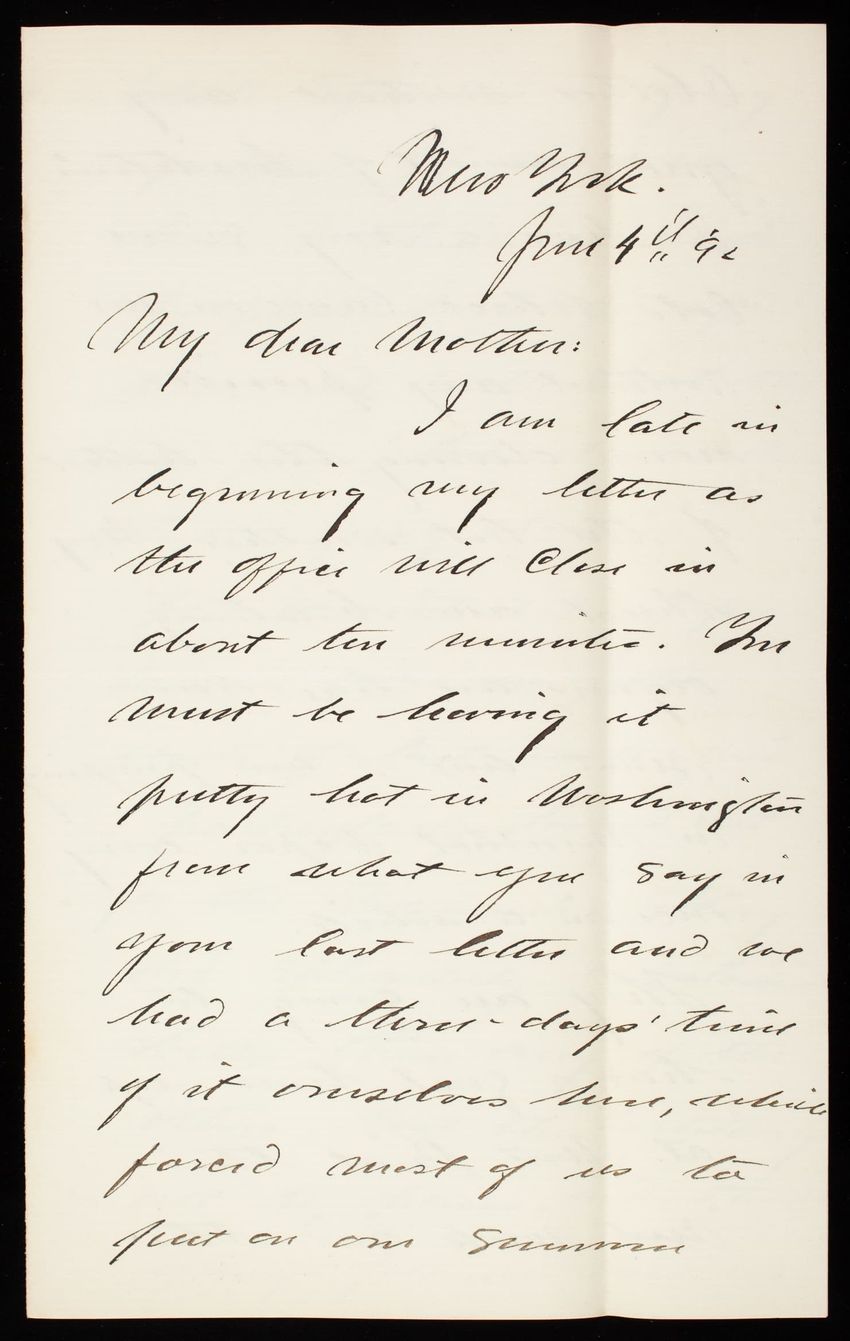 New York.
June 4th 92
My dear Mother:
I am late in
beginning my letter as
the office will close in
about ten minutes. You
must be having it
pretty hot in Washington
from what you say in
your last letter and we
had a three-days' time
of it ourselves here, which
forced most of us to
put on our summer